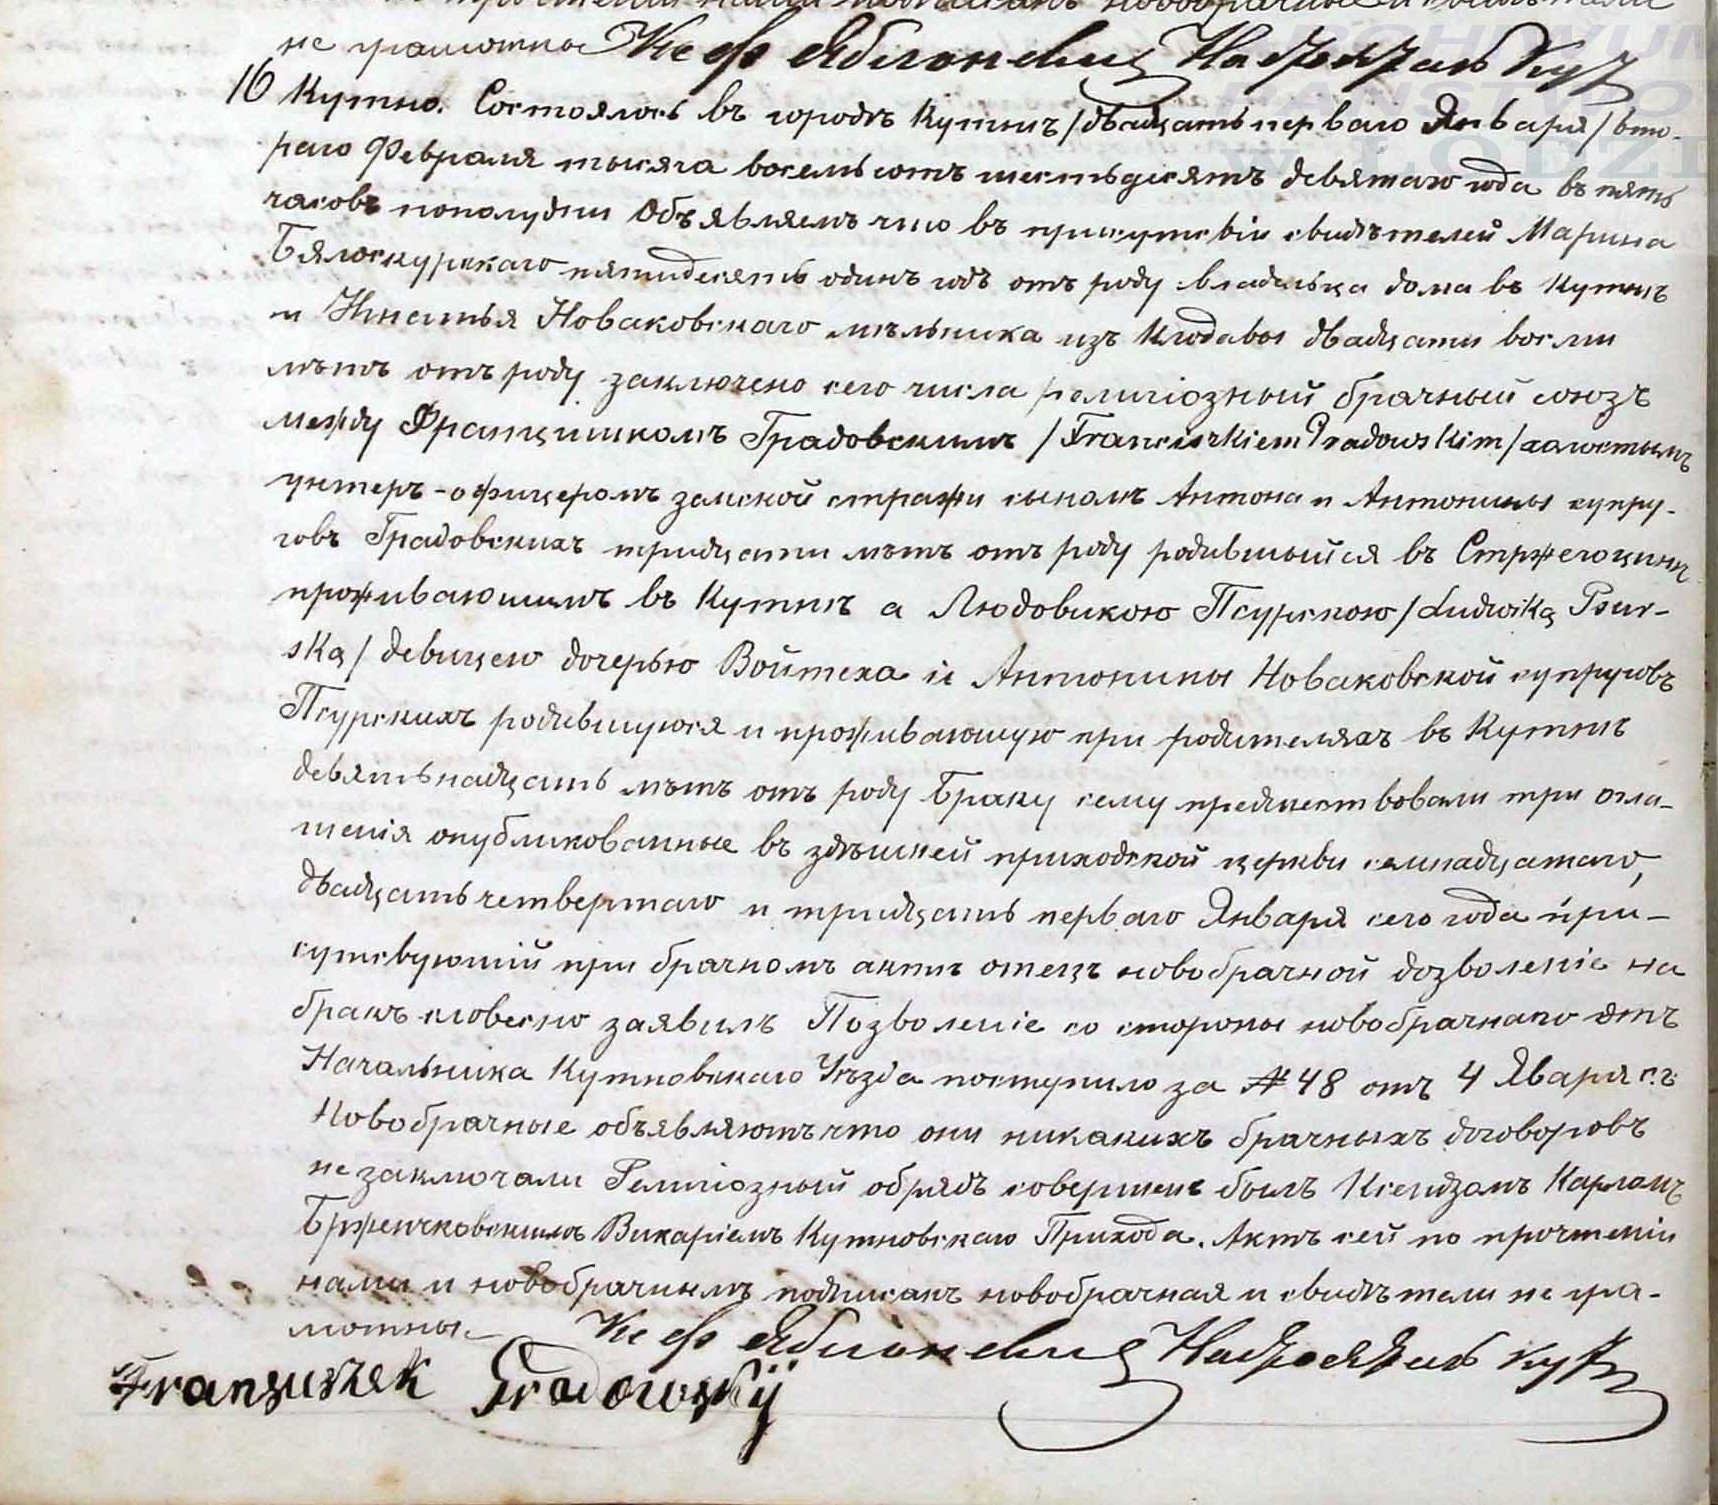 не грамотны Кс Ф Яблоневич
16 Кутно. Состоялось въ городѣ Кутнѣ /двадцать перваго Января/ вто-
раго Февраля тысяча восемьсотъ шестьдесятъ девятаго года въ пять
часовъ пополудни Объявляемъ что въ присутствіи свидѣтелей Марина
Бялоскурскаго пятидесять одинъ годъ отъ роду владѣльца дома въ Кутнѣ
и Игнатья Новаковскаго мѣльника изъ Клодавы двадцати восьми
лѣтъ отъ роду заключено сего числа религіозный брачный союзъ
между Францишкомъ Градовскимъ /Franciszkiem Gradowskim/ холостымъ
унтеръ-офицеромъ земской стражи сыномъ Антона и Антонины супру-
говъ Градовскихъ тридцати лѣтъ отъ роду родившыйся въ Стржегоцинѣ
проживающимъ въ Кутнѣ а Людовикою Псурскою /Ludwiką Psur-
ską/ девицею дочерью Войтеха и Антонины Новаковской супруговъ
Псурскихъ родившуюся и проживающую при родителяхъ въ Кутнѣ
девятьнадцать лѣтъ отъ роду Браку сему предшествовали три огла-
шенія опубликованные въ здѣшней приходской церкви семнадцатаго,
двадцать четвертаго и тридцать перваго Января сего года при-
сутствующій при брачномъ актѣ отецъ новобрачной дозволеніе на
бракъ словесно заявилъ Позволеніе со стороны новобрачнаго отъ
Начальника Кутновскаго Уѣзда поступило за № 48 отъ 4 Яваря с.г.
Новобрачные объявляютъ что они никакихъ брачныхъ договоровъ
не заключали Религіозный обрядъ совершенъ былъ Ксендзомъ Карломъ
Брженчковскимъ Викаріемъ Кутновскаго Прихода. Актъ сей по прочтеніи
нами и новобрачнымъ подписанъ новобрачная и свидѣтели не гра-
мотны Кс Ф Яблоневич
Franzuszek Gradowskij